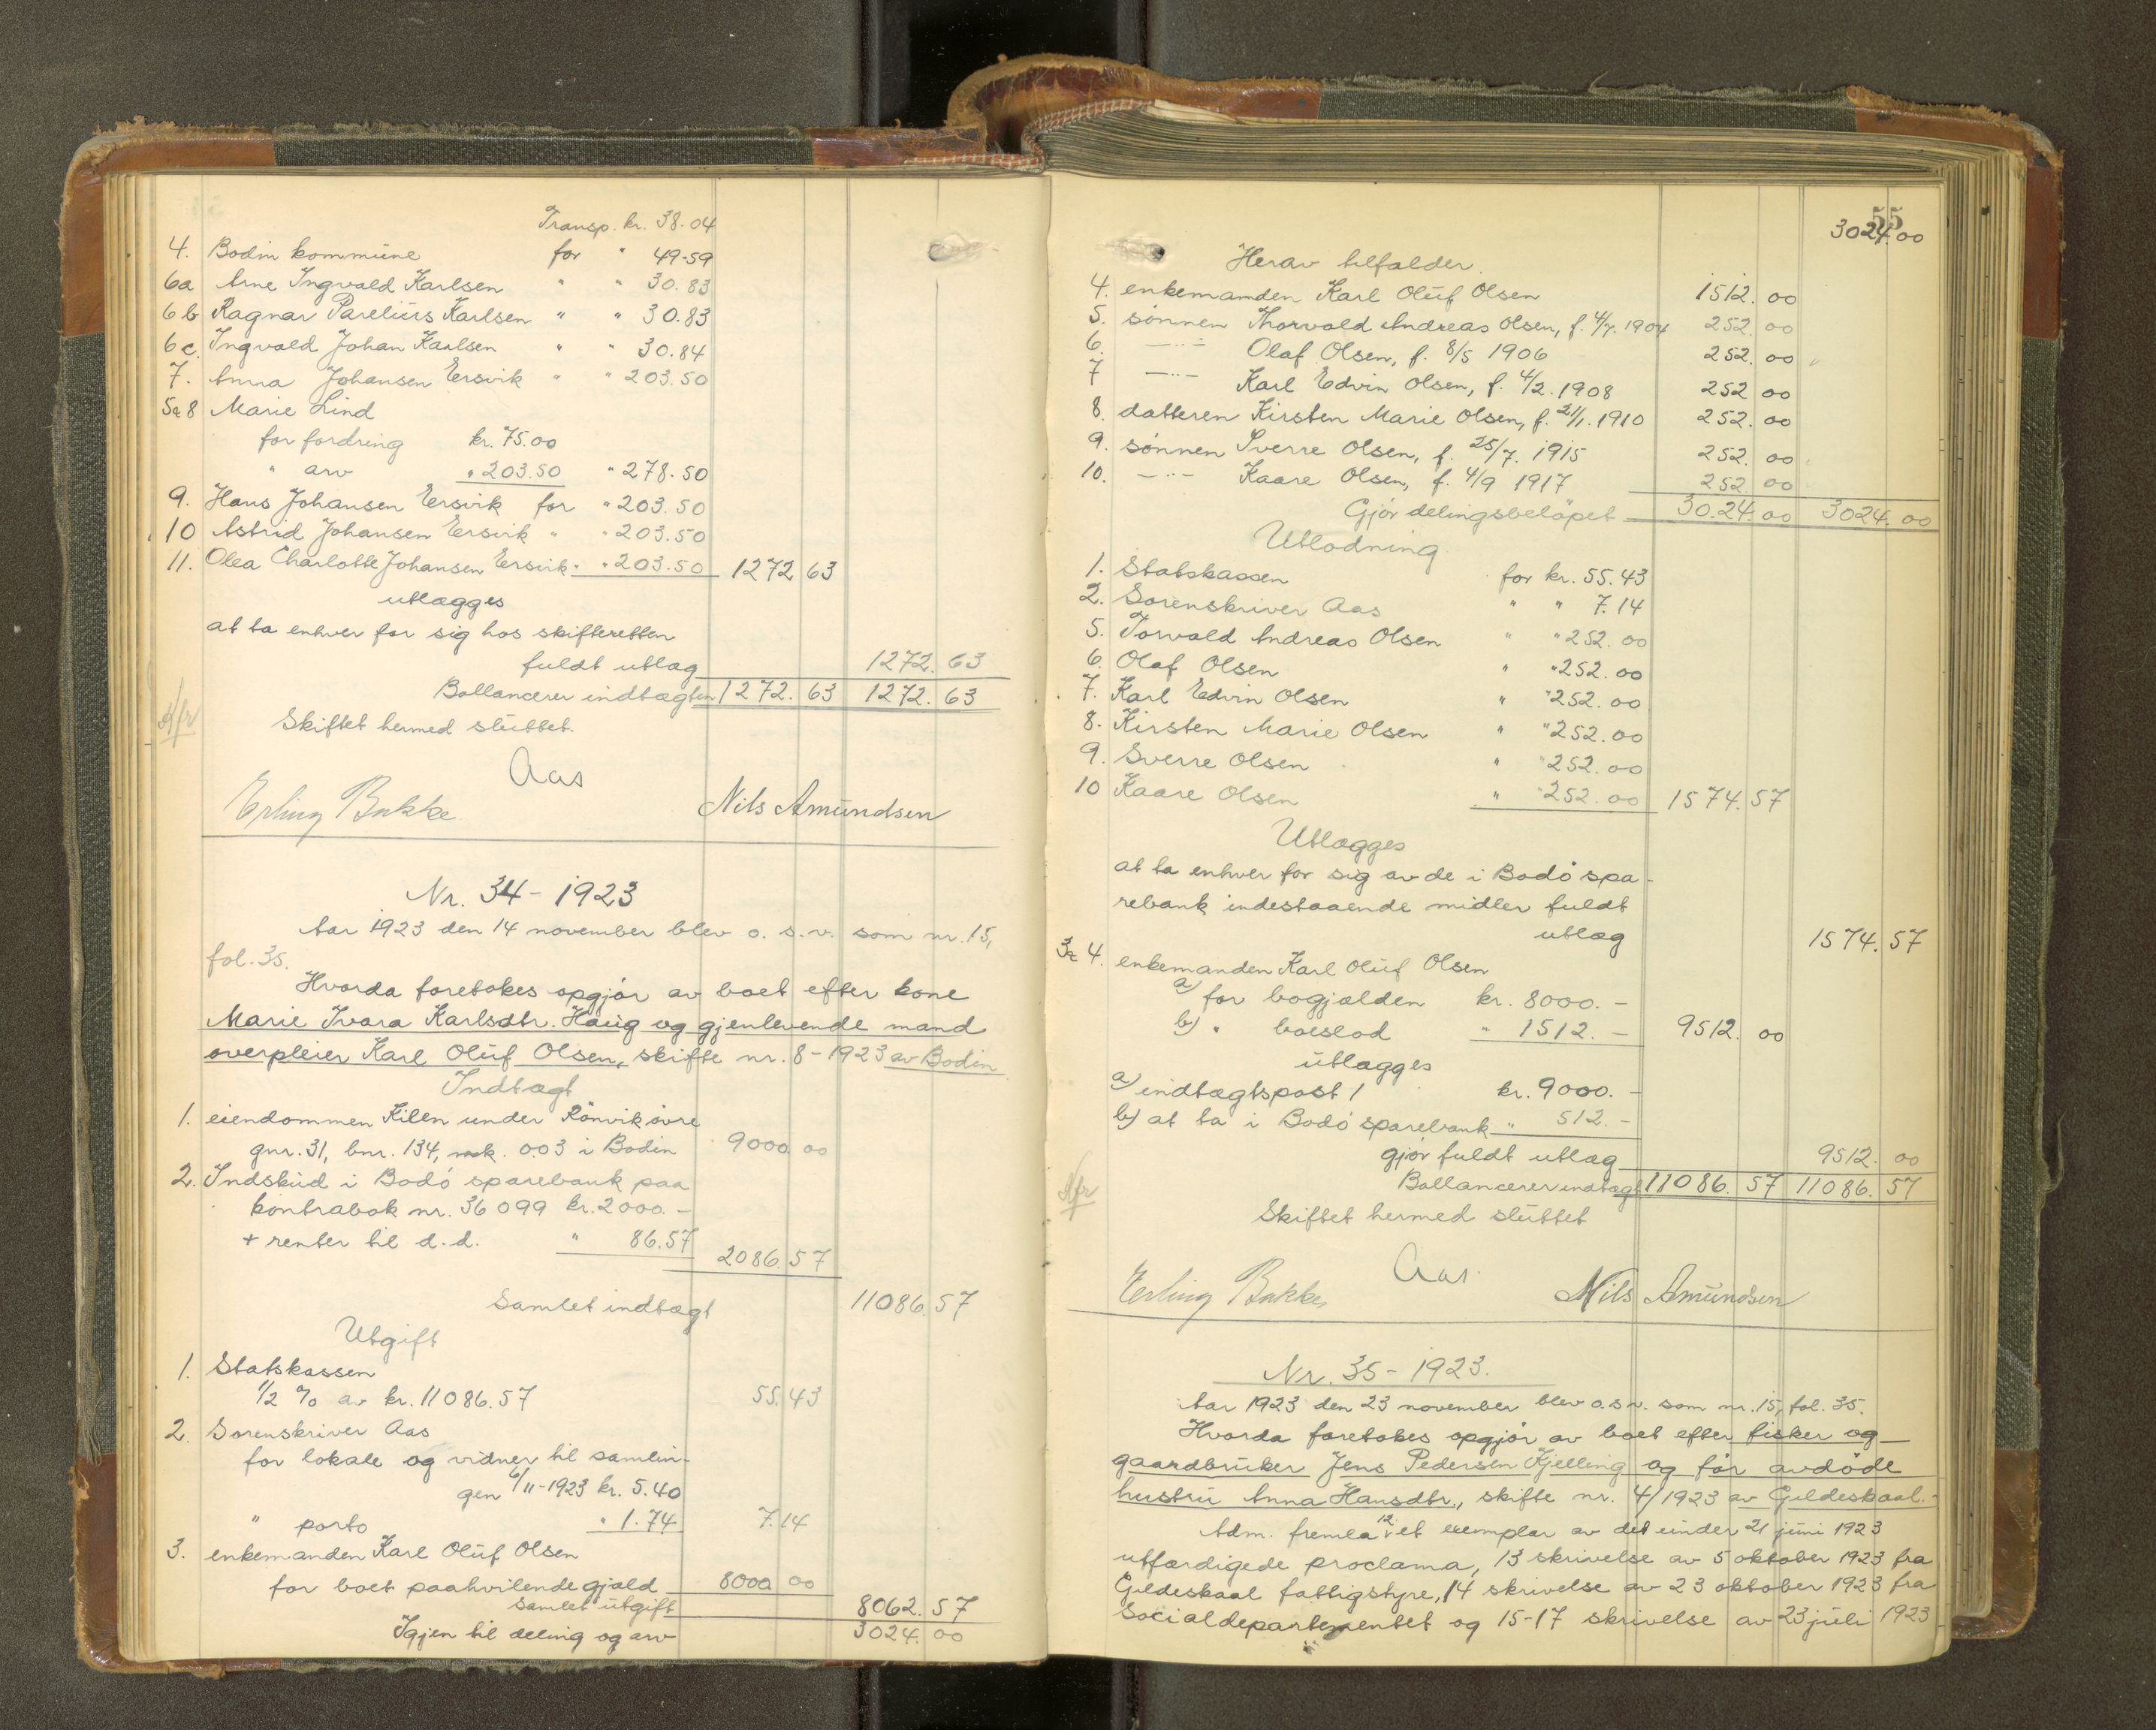 Transp. kr. 38.04
4. Bodin kommune for " 49.59
6a Arne Ingvald Karlsen " " 30.83
6b Ragnar Parelius Karlsen " " 30.83
6c. Ingvald Johan Karlsen " " 30.84
7. Anna Johansen Ersvik " " 203.50
5 & 8 Marie Lind
for fordring kr. 75.00
" arv " 203.50 " 278.50
9. Hans Johansen Ersvik for " 203.50
10 Astrid Johansen Ersvik " " 203.50
11. Olea Charlotte Johansen Ersvik " " 203.50 1272 63
utlægges
at ta enhver for sig hos skifteretten
fuldt utlæg 1272. 63
Ballancerer indtægten 1272. 63 1272. 63
Afr
Skiftet hermed sluttet.
Aas
Erling Bakke Nils Amundsen
Nr. 34 - 1923
Aar 1923 den 14 november blev o. s. v. som nr. 15,
fol. 35.
Hvorda foretokes opgjør av boet efter kone
Marie Ivara Karlsdtr. Haug og gjenlevende mand
overpleier Karl Oluf Olsen, skifte nr. 8 - 1923 av Bodin
Indtægt
1. eiendommen Kilen under Rønvik øvre
gnr. 31, bnr. 134, mk. 0.03 i Bodin 9000 00
2. Indskud i Bodø sparebank paa
kontrabok nr. 36099 kr. 2000. -
+ renter til d. d. " 86.57 2086. 57
Samlet indtægt 11086. 57
Utgift
1. Statskassen
1/2 % av kr. 11086.57 55. 43
2. Sorenskriver Aas
for lokale og vidner til samlin-
gen 6/11 - 1923 kr. 5.40
" porto " 1.74 7. 14
3. enkemanden Karl Oluf Olsen
for boet paahvilende gjæld 8000 00
samlet utgift 8062. 57
Igjen til deling og arv 3024. 00
55
3024.00
Herav tilfalder.
4. enkemanden Karl Oluf Olsen 1512. 00
5. sønnen Thorvald Andreas Olsen, f. 4/7. 1904 252. 00
6. - " - Olaf Olsen, f. 8/5 1906 252. 00
7 - " - Karl Edvin Olsen, f. 4/2. 1908 252 00
8. datteren Kirsten Marie Olsen, f. 21/1. 1910 252. 00
9. sønnen Sverre Olsen, f. 25/7. 1915 252. 00
10. - " - Kaare Olsen, f. 4/9 1917 252. 00
Gjør delingsbeløpet 30.24. 00 3024. 00
Utlodning
1. Statskassen for kr. 55.43
2. Sorenskriver Aas " " 7.14
5. Torvald Andreas Olsen " " 252. 00
6. Olaf Olsen " " 252. 00
7. Karl Edvin Olsen " " 252. 00
8. Kirsten Marie Olsen " " 252. 00
9. Sverre Olsen " " 252. 00
10 Kaare Olsen " " 252. 00 1574. 57
Utlægges
at ta enhver for sig av de i Bodø spa-
rebank indestaaende midler fuldt
utlæg 1574. 57
3 & 4. enkemanden Karl Oluf Olsen
a) for bogjælden kr. 8000. -
b) " boeslod " 1512. - 9512. 00
utlægges
a) indtægtspost 1 kr. 9000. -
b) at ta i Bodø sparebank " 512. -
gjør fuldt utlæg 9512. 00
Ballancerer indtægt 11086. 57 11086. 57
Afr
Skiftet hermed sluttet
Aas.
Erling Bakke Nils Amundsen
Nr. 35 - 1923.
Aar 1923 den 23 november blev o. s. v. som nr. 15, fol. 35.
Hvorda foretokes opgjør av boet efter fisker og
gaardbruker Jens Pedersen Kjelling og før avdøde
hustru Anna Hansdtr., skifte nr. 4/1923 av Gildeskaal. -
Adm. fremla 12 et exemplar av det under 21 juni 1923
utfærdigede proclama, 13 skrivelse av 5 oktober 1923 fra
Gildeskaal fattigstyre, 14 skrivelse av 23 oktober 1923 fra
Socialdepartementet og 15-17 skrivelse av 23 juli 1923